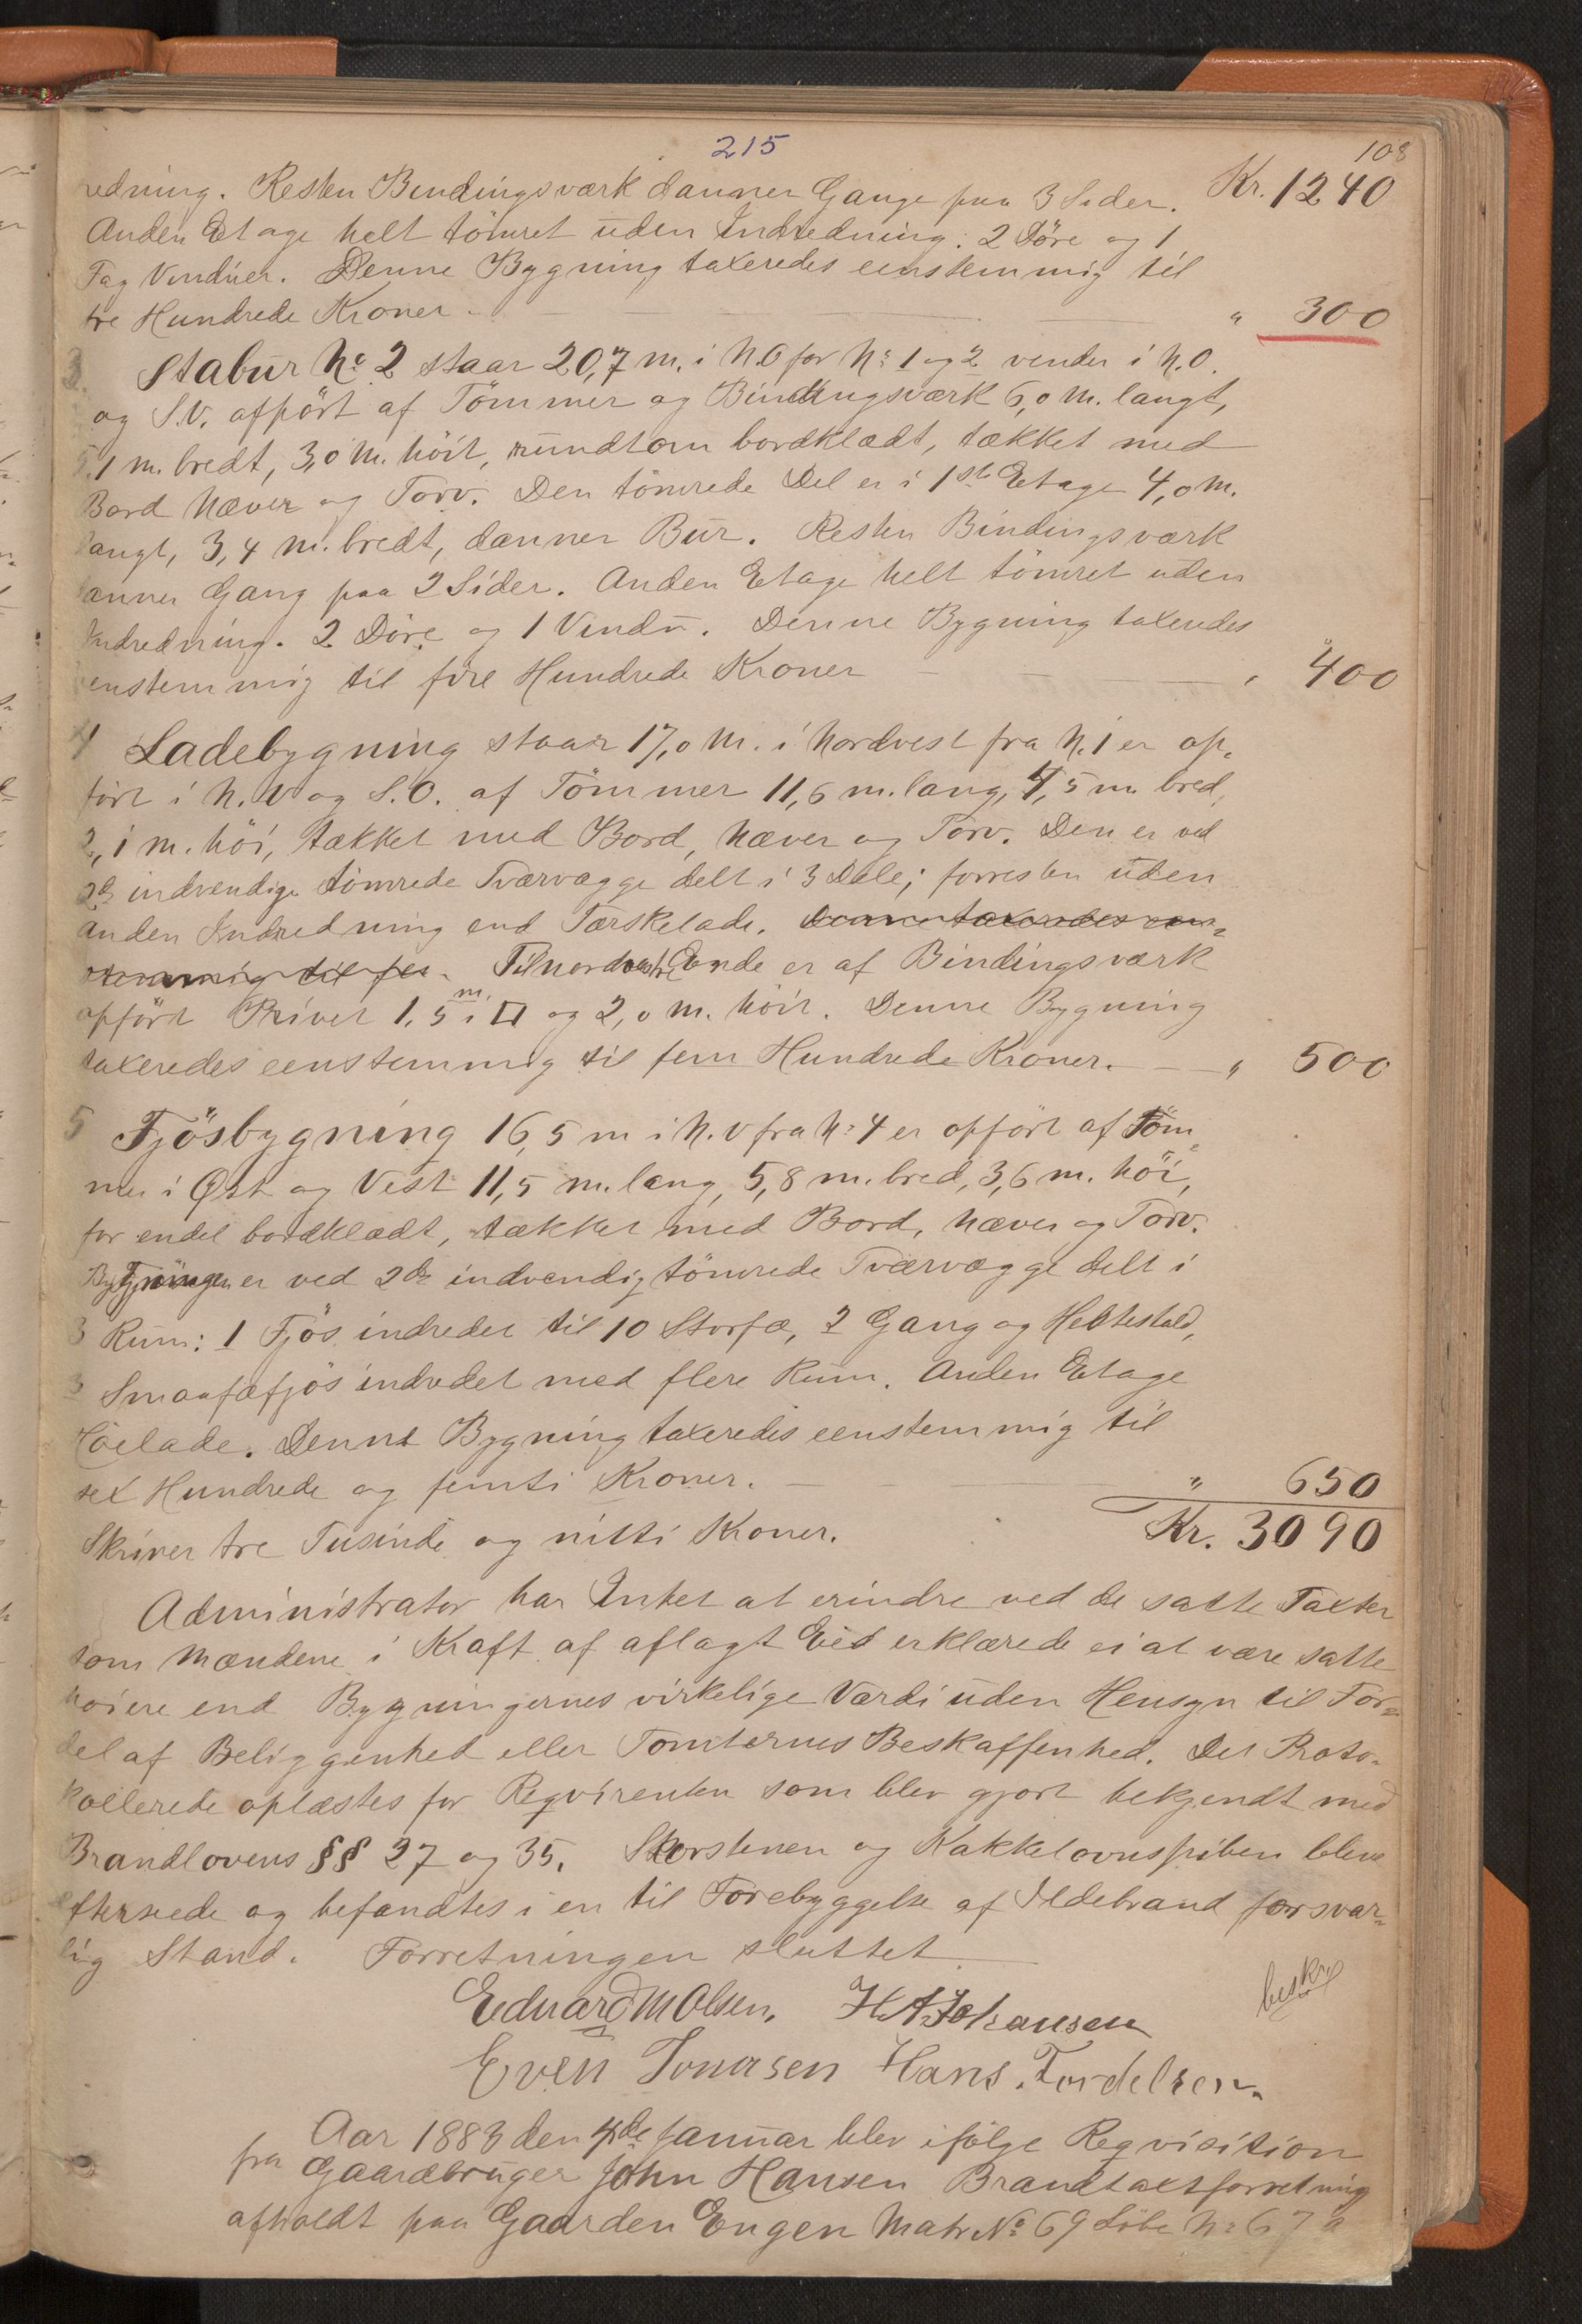 215
108
redning. Resten Bindingsværk danner Gange paa 3 Sider. Kr. 1240
Anden Etage helt tömret uden Indredning. 2 Döre og 1
Fag Vinduer. Denne Bygning taxeredes eenstemmig til
tre Hundrede Kroner — " 300
3. Stabur No 2 staar 20,7 m. i N.O for No 1 og 2 vender i N.O.
og S.V. opfört af Tömmer og Bindingsværk 6,0 m. langt,
5,1 m. bredt, 3,0 m. höit, rundtom bordklædt, tækket med
Bord Næver og Torv. Den tömrede Del er i 1ste Etage 4,0 m.
langt, 3,4 m. bredt, danner Bur. Resten Bindingsværk
danner Gang paa 2 Sider. Anden Etage helt tömret uden
Indredning. 2 Döre og 1 Vindu. Denne Bygning taxeredes
eenstemmig til fire Hundrede Kroner — " 400
4 Ladebygning staar 17,0 m. i Nordvest fra N. 1 er op-
fört i N.V og S.O. af Tömmer 11,6 m. lang, 4,5 m bred,
2,1 m. höi, tækket med Bord, Næver og Torv. Den er ved
2de indvendige tömrede Tværvægge delt i 3 Dele; forresten uden
anden Indredning end Tærskelade. Denne taxeredes een-
stemmig til fem. Til nordvestre Ende er af Bindingsværk
opfört Privet 1,5 m i □ og 2,0 m. höit. Denne Bygning
taxeredes eenstemmig til fem Hundrede Kroner. — " 500
5 Fjösbygning 16,5 m i N.V fra No 4 er opfört af Töm-
mer i Øst og Vest 11,5 m. lang, 5,8 m. bred, 3,6 m. höi,
for endel bordklædt, tækket med Bord, Næver og Torv.
Bygningen er ved 2de indvendig tömrede Tværvægge delt i
3 Rum: 1 Fjös indredet til 10 Storfæ, 2 Gang og Hestestald,
3 Smaafæfjös indredet med flere Rum. Anden Etage
Höelade. Denne Bygning taxeredes eenstemmig til
sex Hundrede og femti Kroner. — " 650
Skriver tre Tusinde og nitti Kroner. Kr. 3090
Administrator har Intet at erindre ved de satte Taxter
som Mændene i Kraft af aflagt Eed erklærede ei at være satte
höiere end Bygningernes virkelige Værdi uden Hensyn til For-
del af Beliggenhed eller Tomternes Beskaffenhed. Det Proto-
kollerede oplæstes for Reqvirenten som blev gjort bekjendt med
Brandlovens §§ 27 og 35. Skorstenen og Kakkelovnspiben bleve
efterseede og befandtes i en til Forebyggelse af Ildebrand forsvar-
lig Stand. Forretningen sluttet.
beskr
Edvard M Olsen. H A Johansen
Even Tomasen Hans Tordelsen.
Aar 1883 den 4de Januar blev ifölge Reqvisition
fra Gaardbruger John Hansen Brandtaxtforretning
afholdt paa Gaarden Engen Matr No 69 Löbe No 67 a